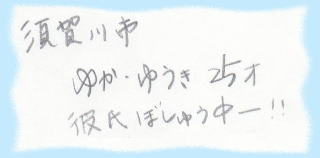 須賀川市
ゆか・ゆうき 25才
彼氏ぼしゅう中ー!!